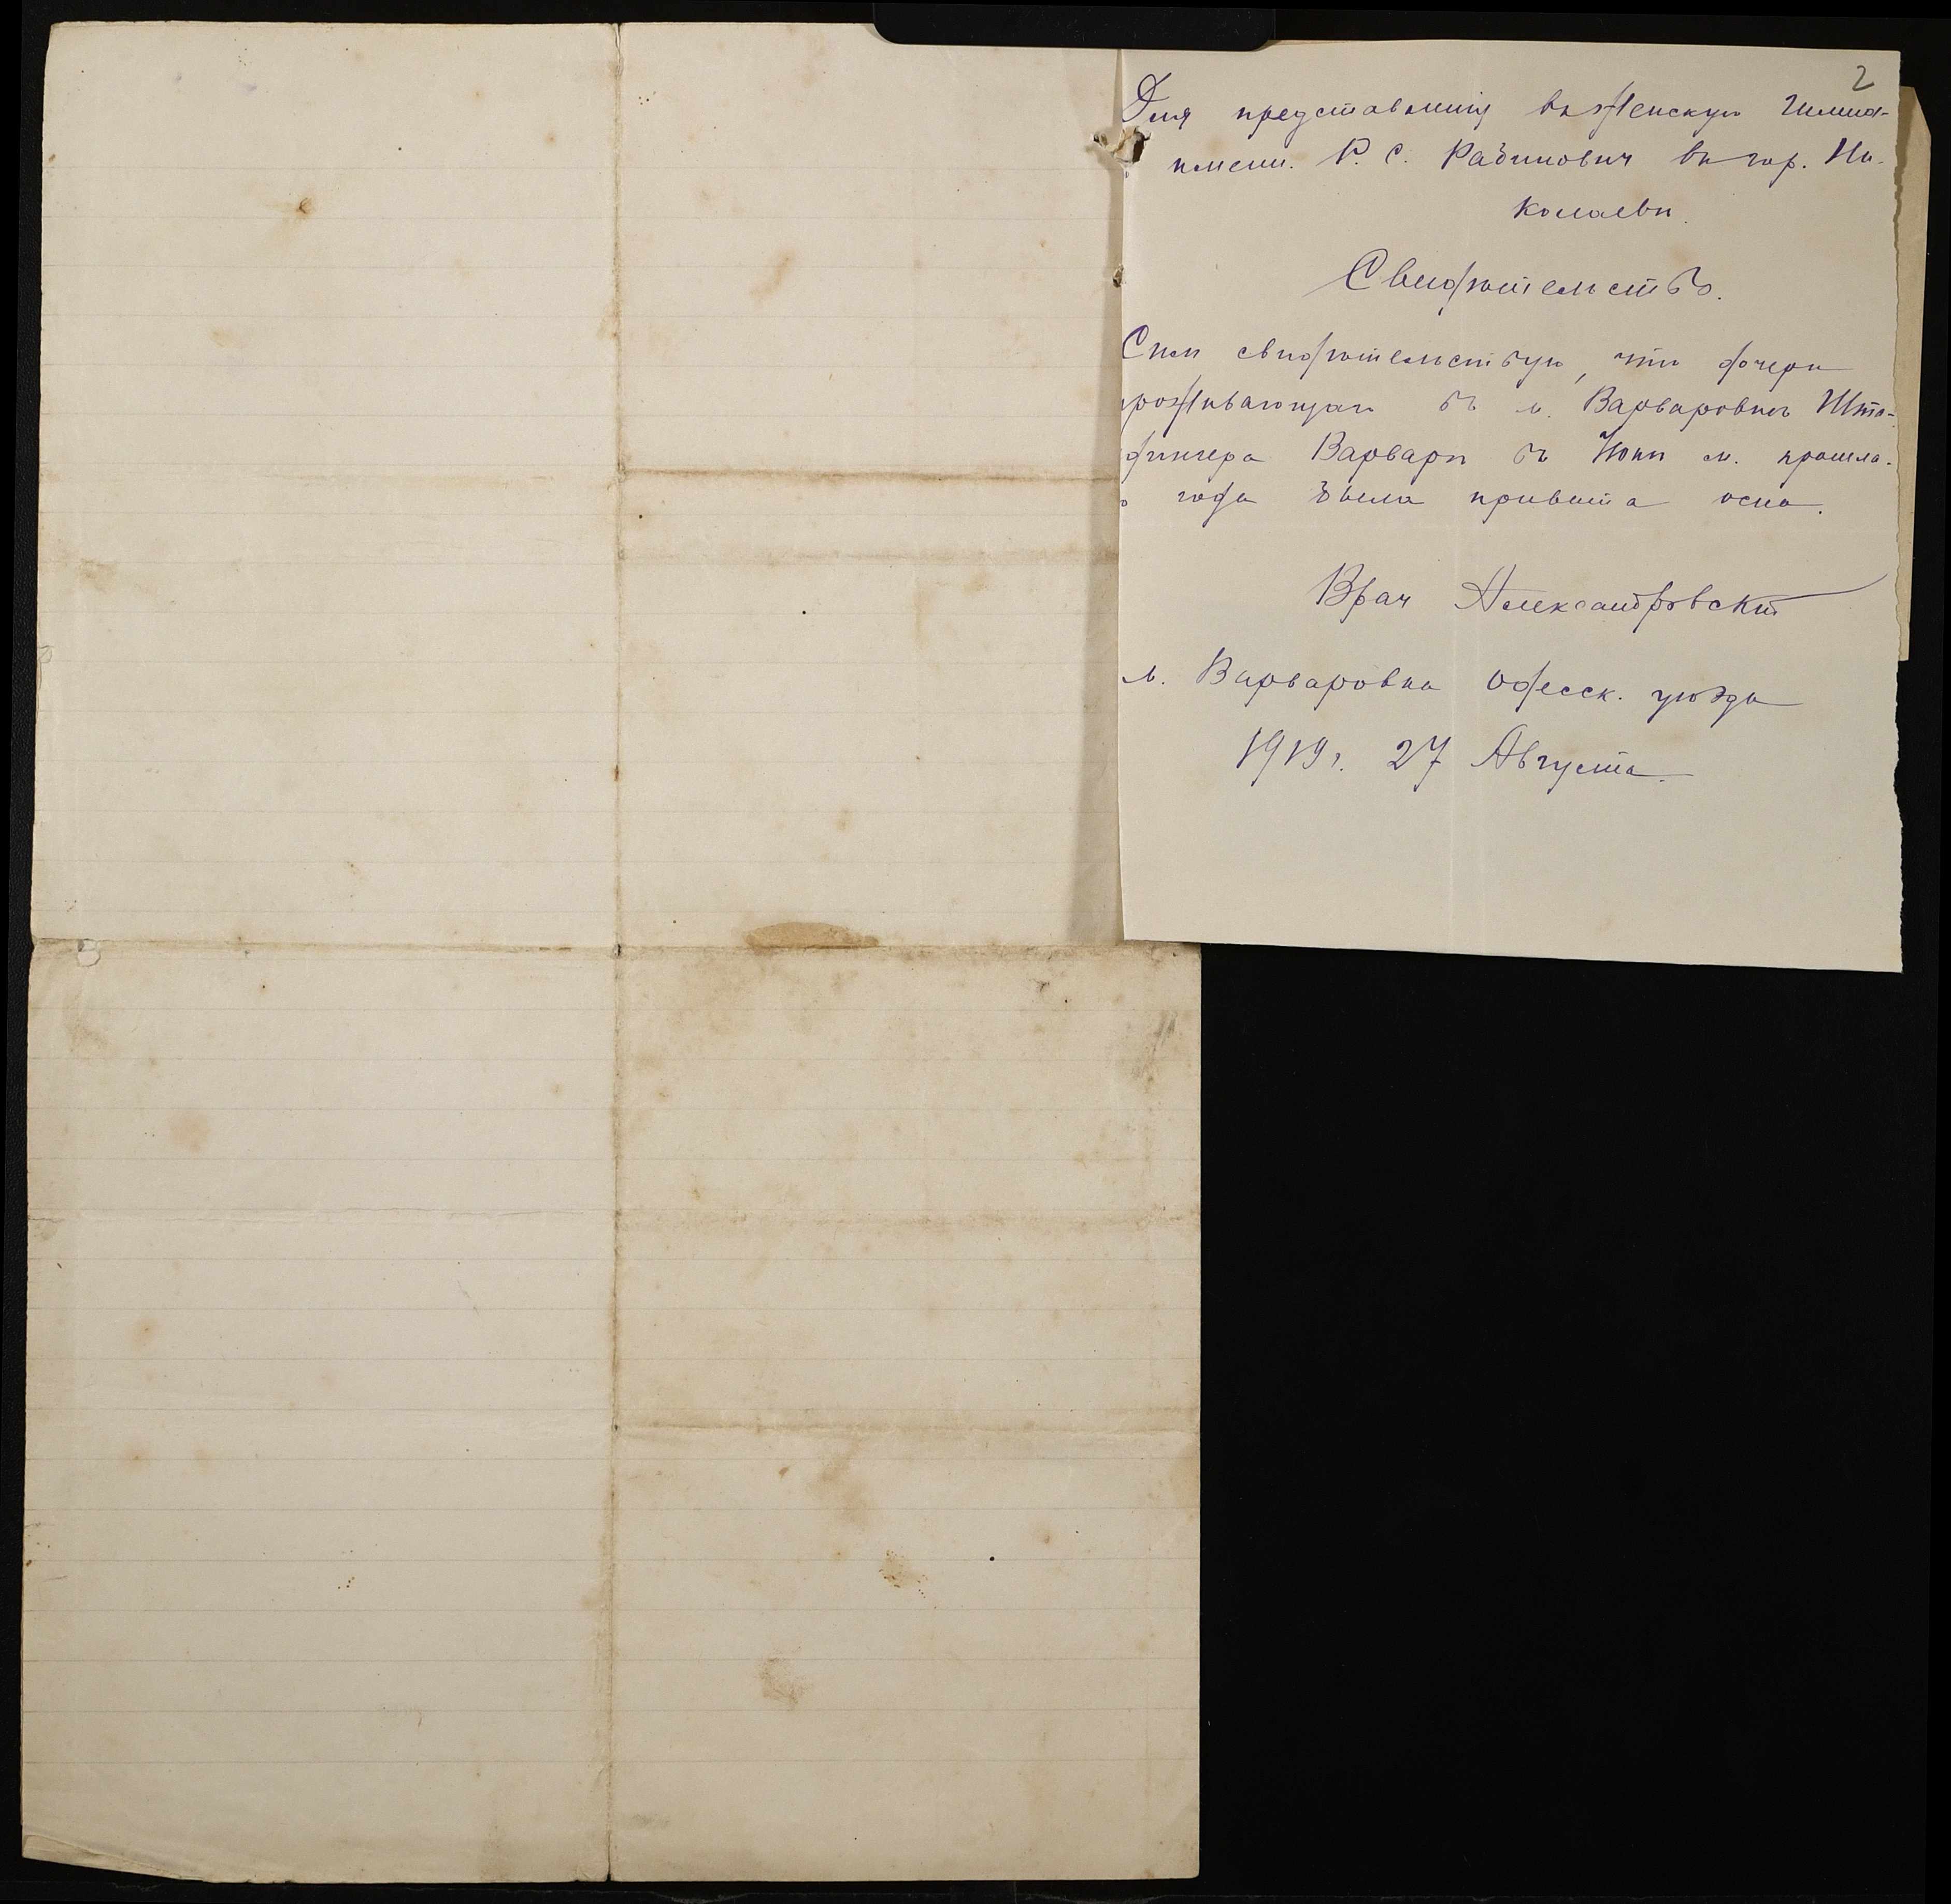 2
Для представленія въ женскую Гимна-
имени. Р. С. Рабинович въ гор. Ни-
колаевѣ.
Свидѣтельство.
Сим свидѣтельствую, что дочери
проживающаго въ м. Варваровкѣ Шта-
дингера Варварѣ въ Юнѣ м. прошла-
о года была привита оспа.
Врач Александровскій
м. Варваровка Одесск. уѣзда
1919 г. 27 Августа.